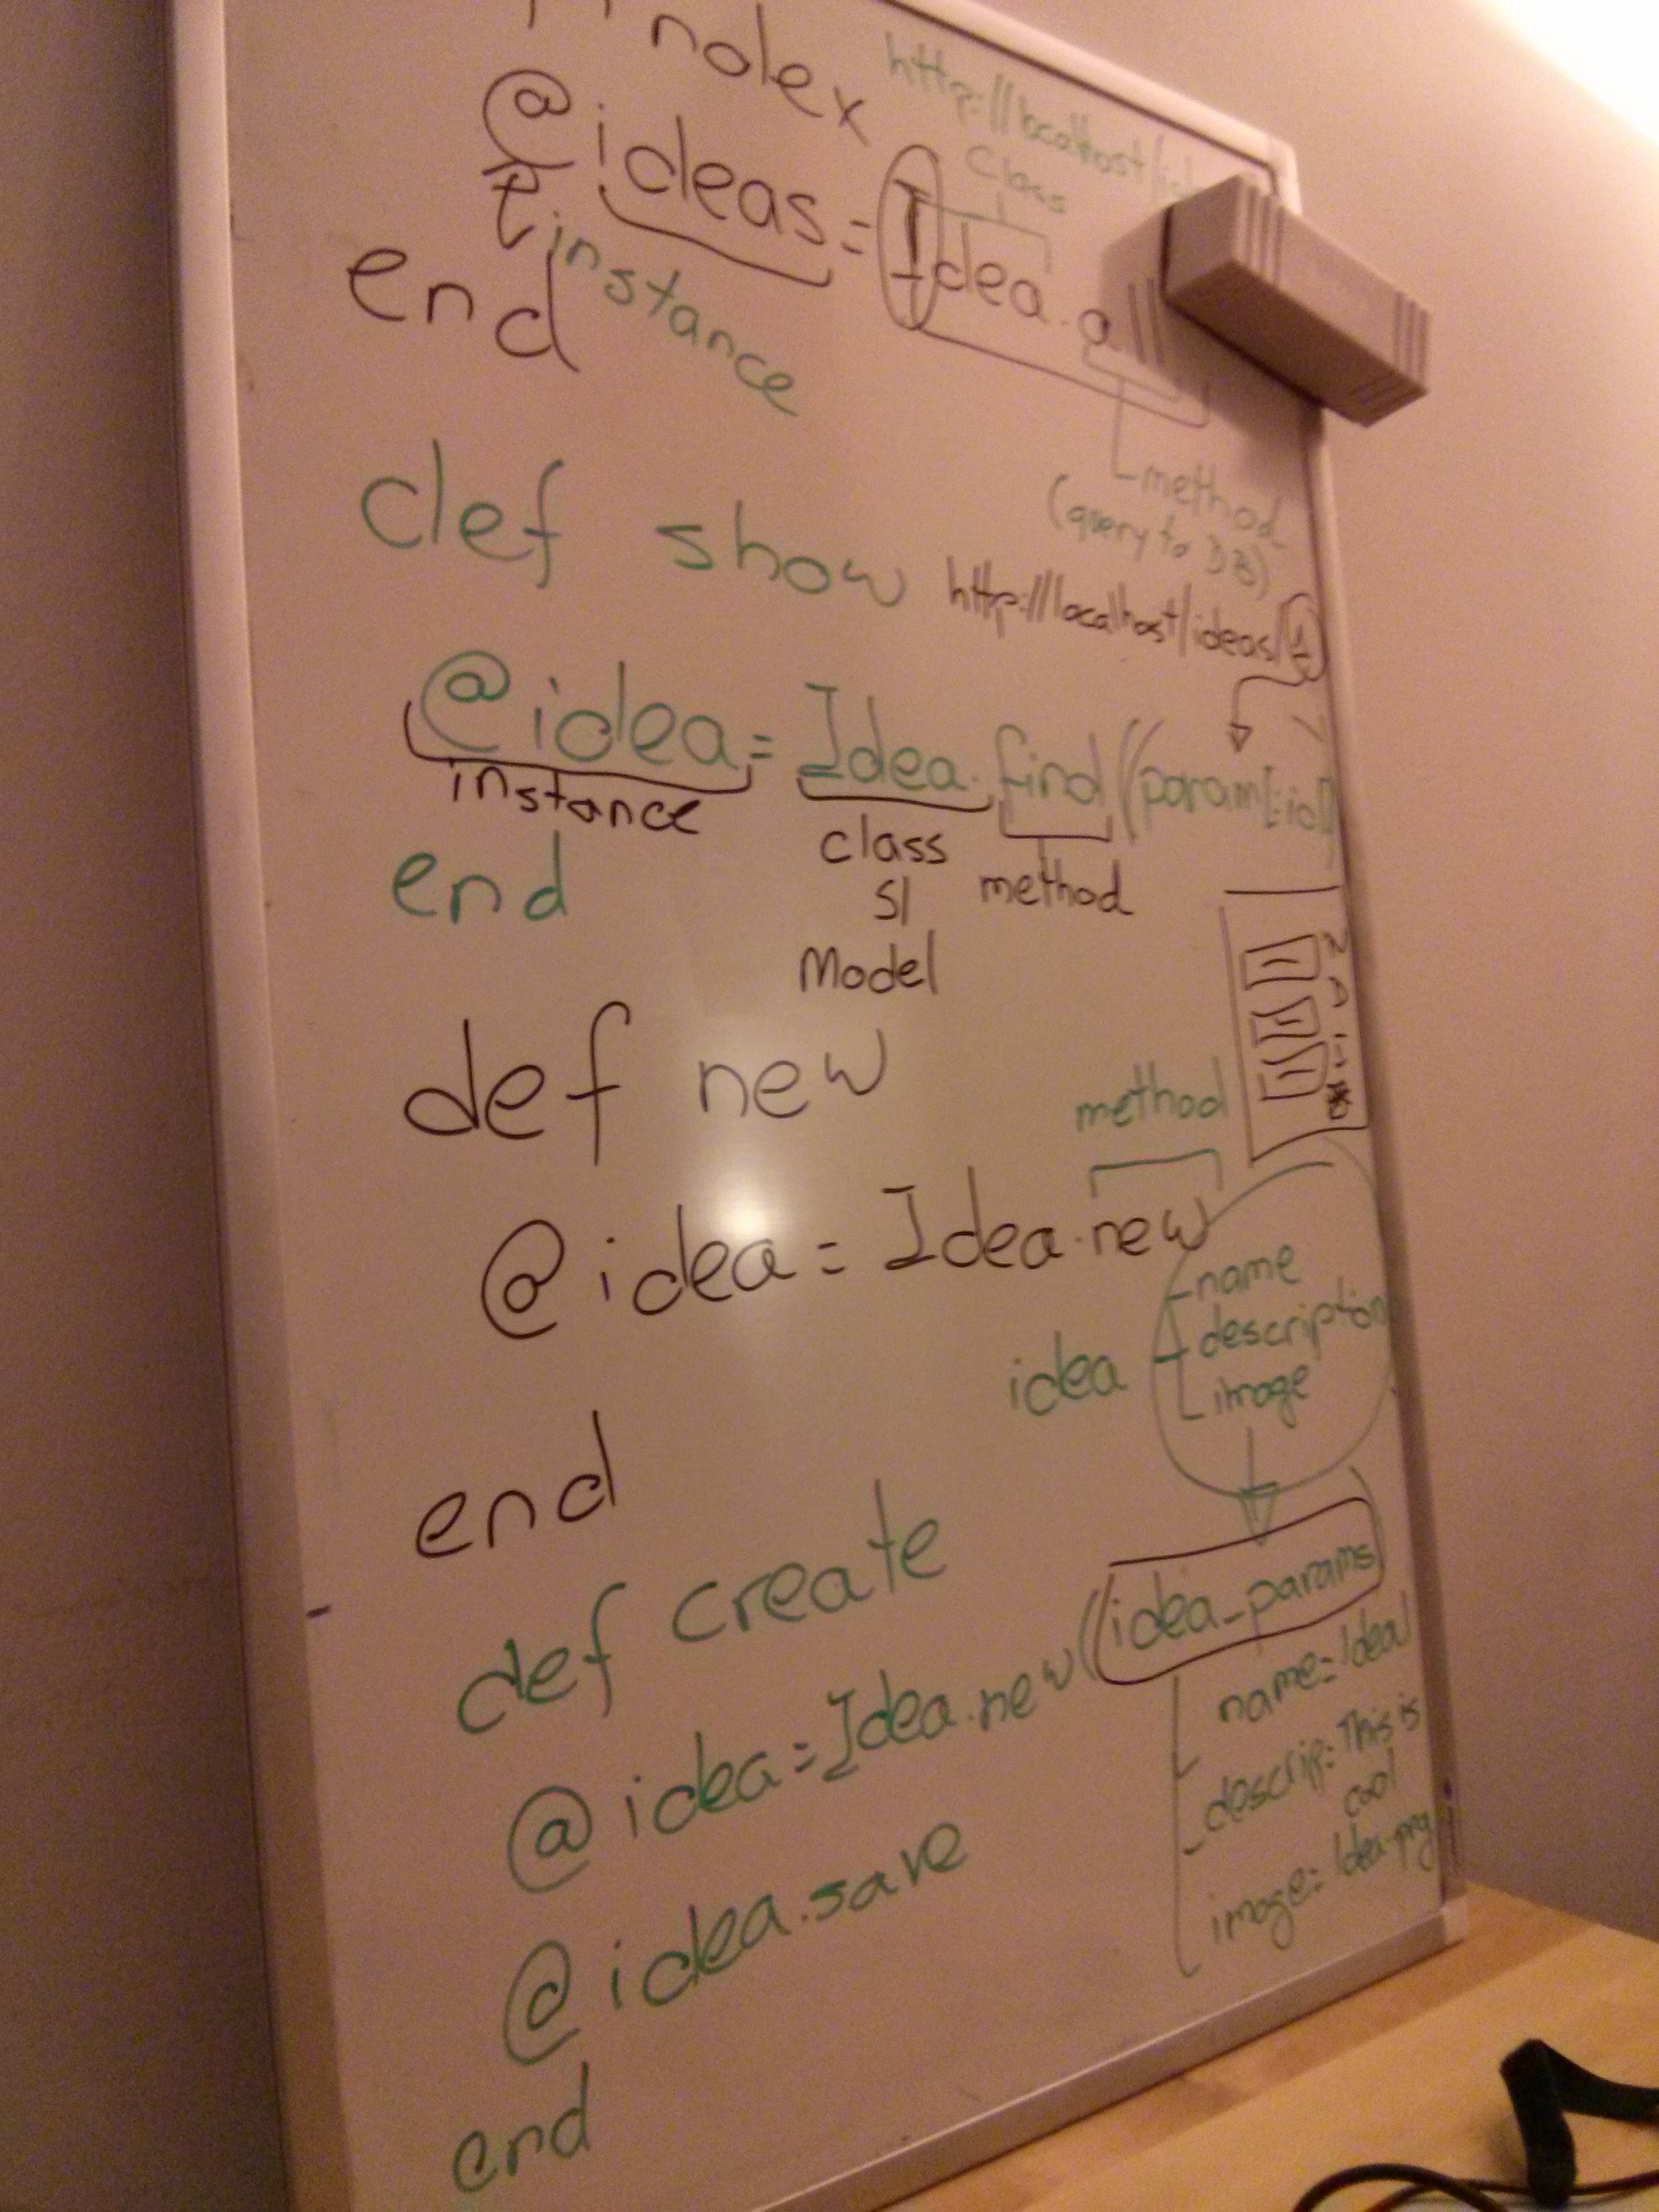 index
http://localhost/
class
@ideas = Idea.all
instance
end
method
(query to DB)
def show
http://localhost/ideas/1
@idea = Idea.find((param[:id]
instance
class
method
end
Model
def new
method
@idea = Idea.new
name
description
idea
image
end
def create
@idea = Idea.new((idea_params)
name = Idea1
descrip: This is
cool
image = Idea.png
@idea.save
end